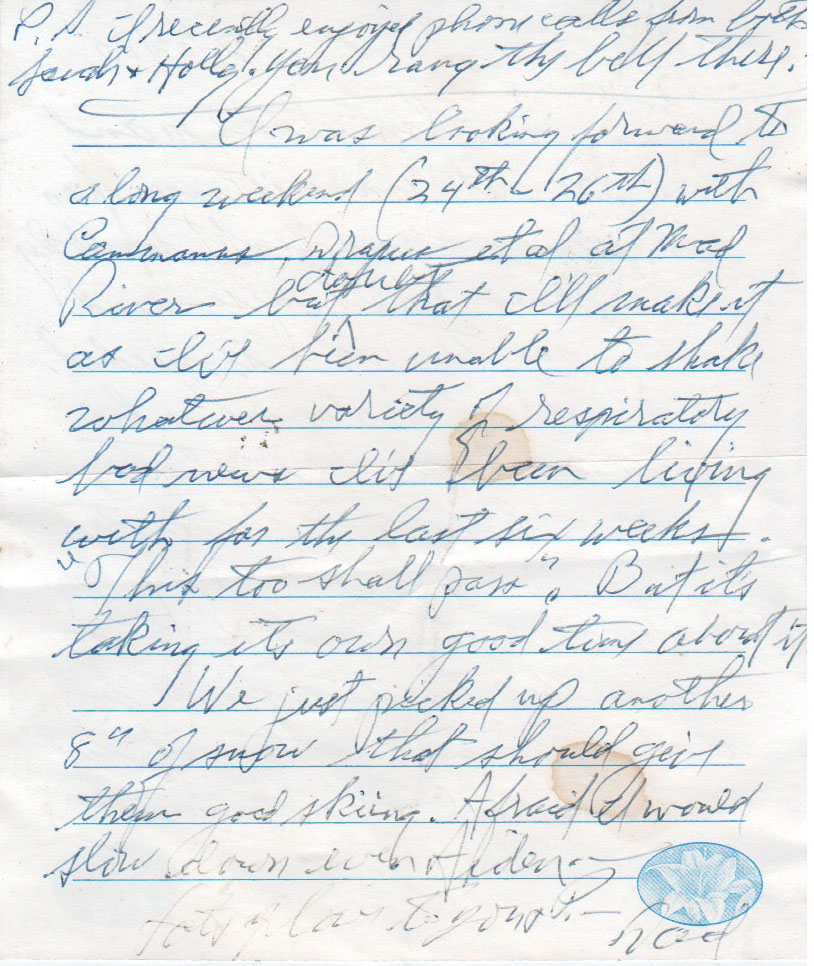 P.S. I recently enjoyed phone calls from both
Sarah + Holly. You rang the bell there.
I was looking forward to
a long weekend (24th - 26th) with
et al at Mad
River but doubt that I'll make it
as I've been unable to shake
whatever variety of respiratory
bad news I've been living
with for the last six weeks.
"This too shall pass". But it's
taking its own good time about it
We just picked up another
8" of snow that should give
them good skiing. Afraid I would
slow down even Aiden —
Lots of love to you + P. —
Dad